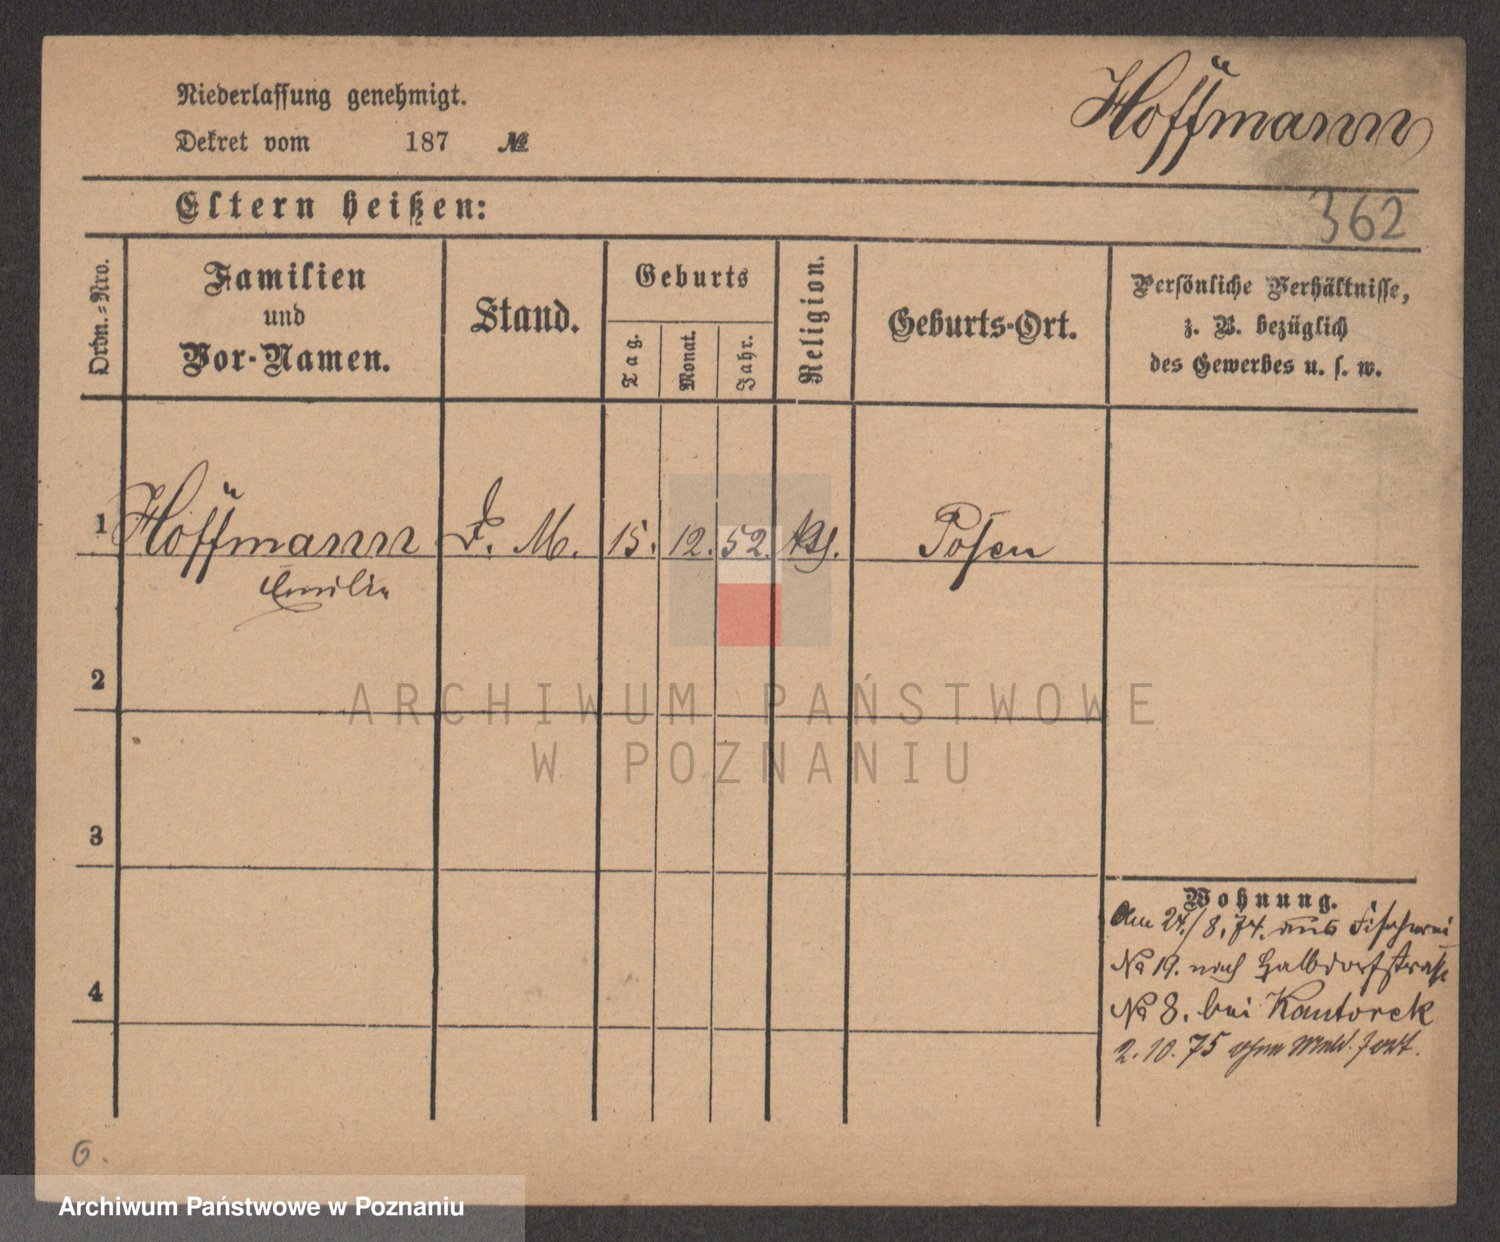 Niederlassung genehmigt.
Hoffmann
Dekret vom 187 №
Eltern heißen:
362
Ordn.-Nro.
Familien
und
Vor-Namen.
Stand.
Geburts
Tag.
Monat.
Jahr.
Religion.
Geburts-Ort.
Persönliche Verhältnisse,
z. B. bezüglich
des Gewerbes u. s. w.
1 Hoffmann D. M. 15. 12. 52. Posen
Emilie
2
ARCHIWUM PAŃSTWOWE
W POZNANIU
3
Wohnung.
Am 24./8.74. aus Fischerei
No 19. nach Halbdorfstraße
4
No 8. bei Kantorek
2.10.75 ohne Meld. fort.
6.
Archiwum Państwowe w Poznaniu